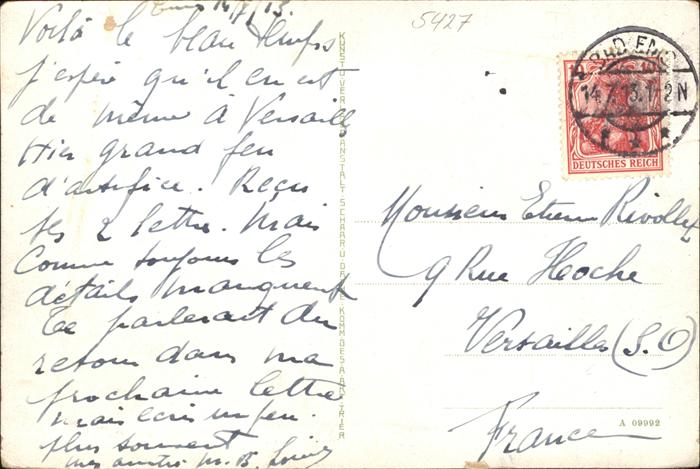 Ems 14/7/13.
Voilà le beau temps
j'espère qu'il en est
de même à Versailles
Hier grand feu
d'artifice. Reçu
tes 2 lettre. Mais
Comme toujours les
détails manquent
Te parlerait du
retour dans ma
prochaine lettre
mais écris un peu
plus souvent
5427
BAD EMS
14.7.13.1-2N
DEUTSCHES REICH
Monsieur Etienne
9 Rue Hoche
Versailles (S.O)
France
A 09992